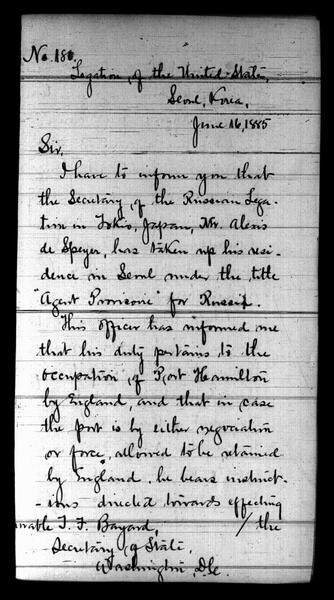 No. 180
Legation, of the United States,
Seoul, Korea,
June 16, 1885
Sir,
I have to inform you that
the Secretary of the Russian Lega-
tion in Tokio, Japan, Mr. Alexis
de Speyer, has taken up his resi-
dence in Seoul under the title
"Agent Provisoire" for Russia.
This officer has informed me
that his duty pertains to the
occupation, of Port Hamilton
by England, and that in case
the port is by either negociation
or force, allowed to be retained
by England, he bears instruct-
-ions directed towards effecting
/ the
T. F. Bayard,
Secretary of State,
Washington, D.C.